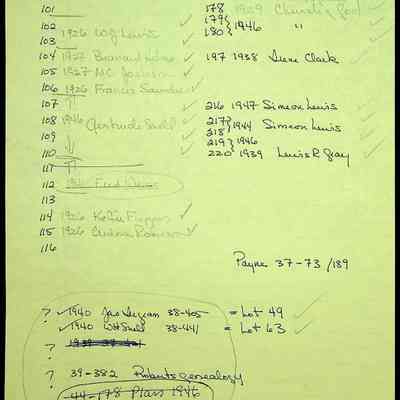 101
102
103 1926 W.J. Lewis ✓
104 1927
105 1927 M.C. Johnson ✓
106 1926 Francis Saunders ✓
107
108 1946 Gertrude Snell ✓
109
110
111
112 Fred
113
114 1926
115 1926
116
178 1909 Church of God ✓
179 }
180 } 1946 "
197 1938 Irene Clark
216 1947 Simeon Lewis
217 }
218 } 1944 Simeon Lewis
219 } 1946
220 1939 Lewis R Gray
Payne 37-73/189
? ✓ 1940 Jas 38-405 = Lot 49 ✓
✓ 1940 WH Snell 38-441 = Lot 63 ✓
?
? 39-382 Roberts genealogy
44-178 Plans 1946